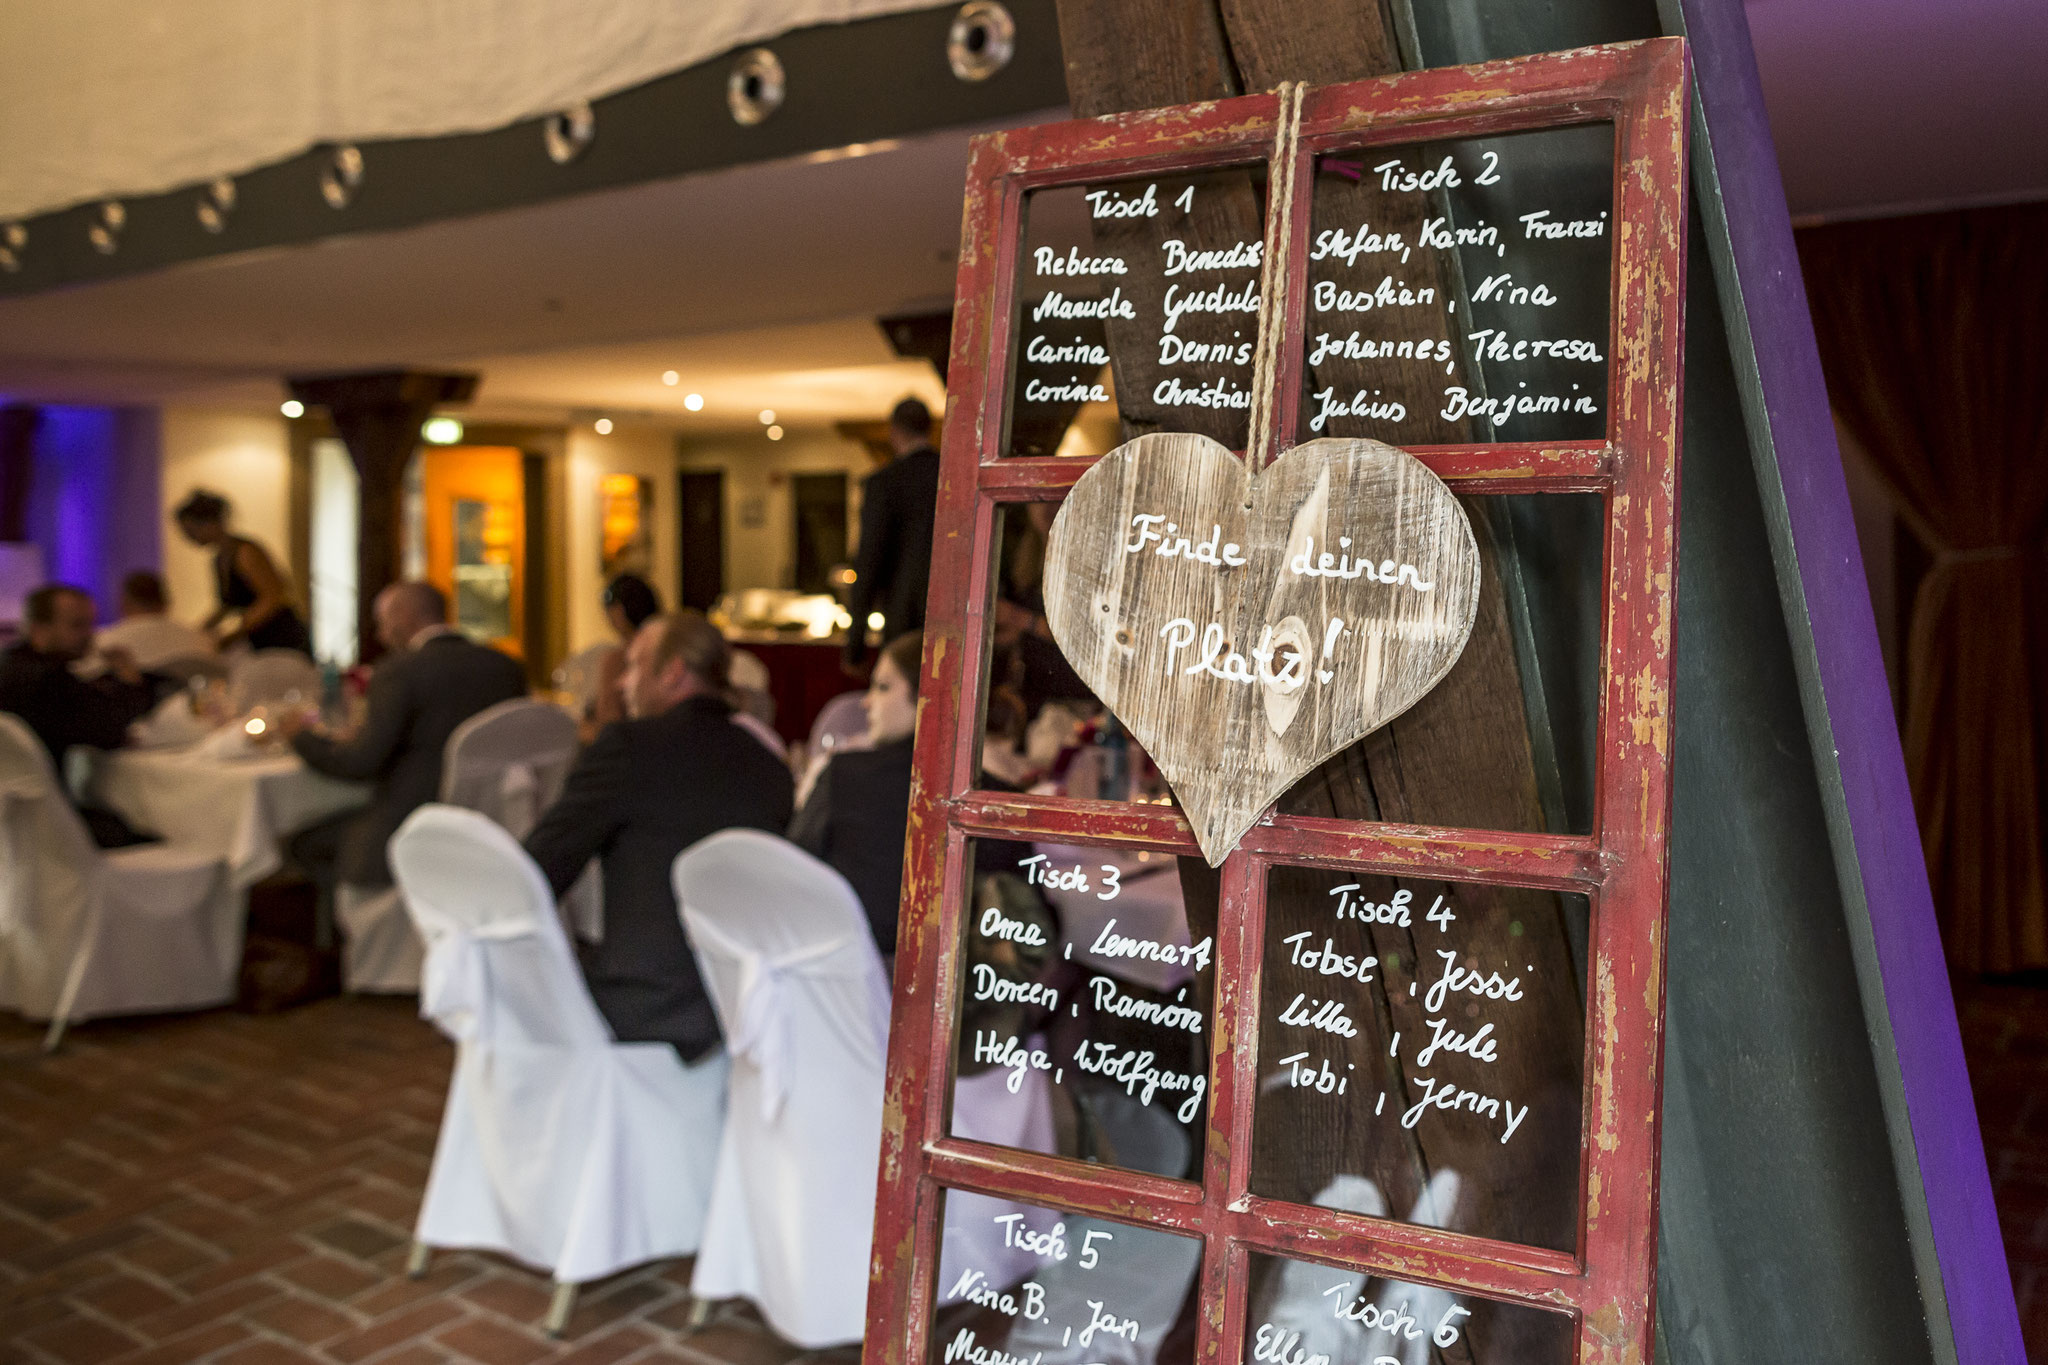 Tisch 1
Rebecca Benedikt
Manuela Gudula
Carina Dennis
Corina Christian
Tisch 2
Stefan, Karin, Franzi
Bastian, Nina
Johannes, Theresa
Julius Benjamin
Finde deinen
Platz!
Tisch 3
Oma, Lennart
Doreen, Ramón
Helga, Wolfgang
Tisch 4
Tobse, Jessi
Lilla, Jule
Tobi, Jenny
Tisch 5
Nina B., Jan
Tisch 6
Ellen